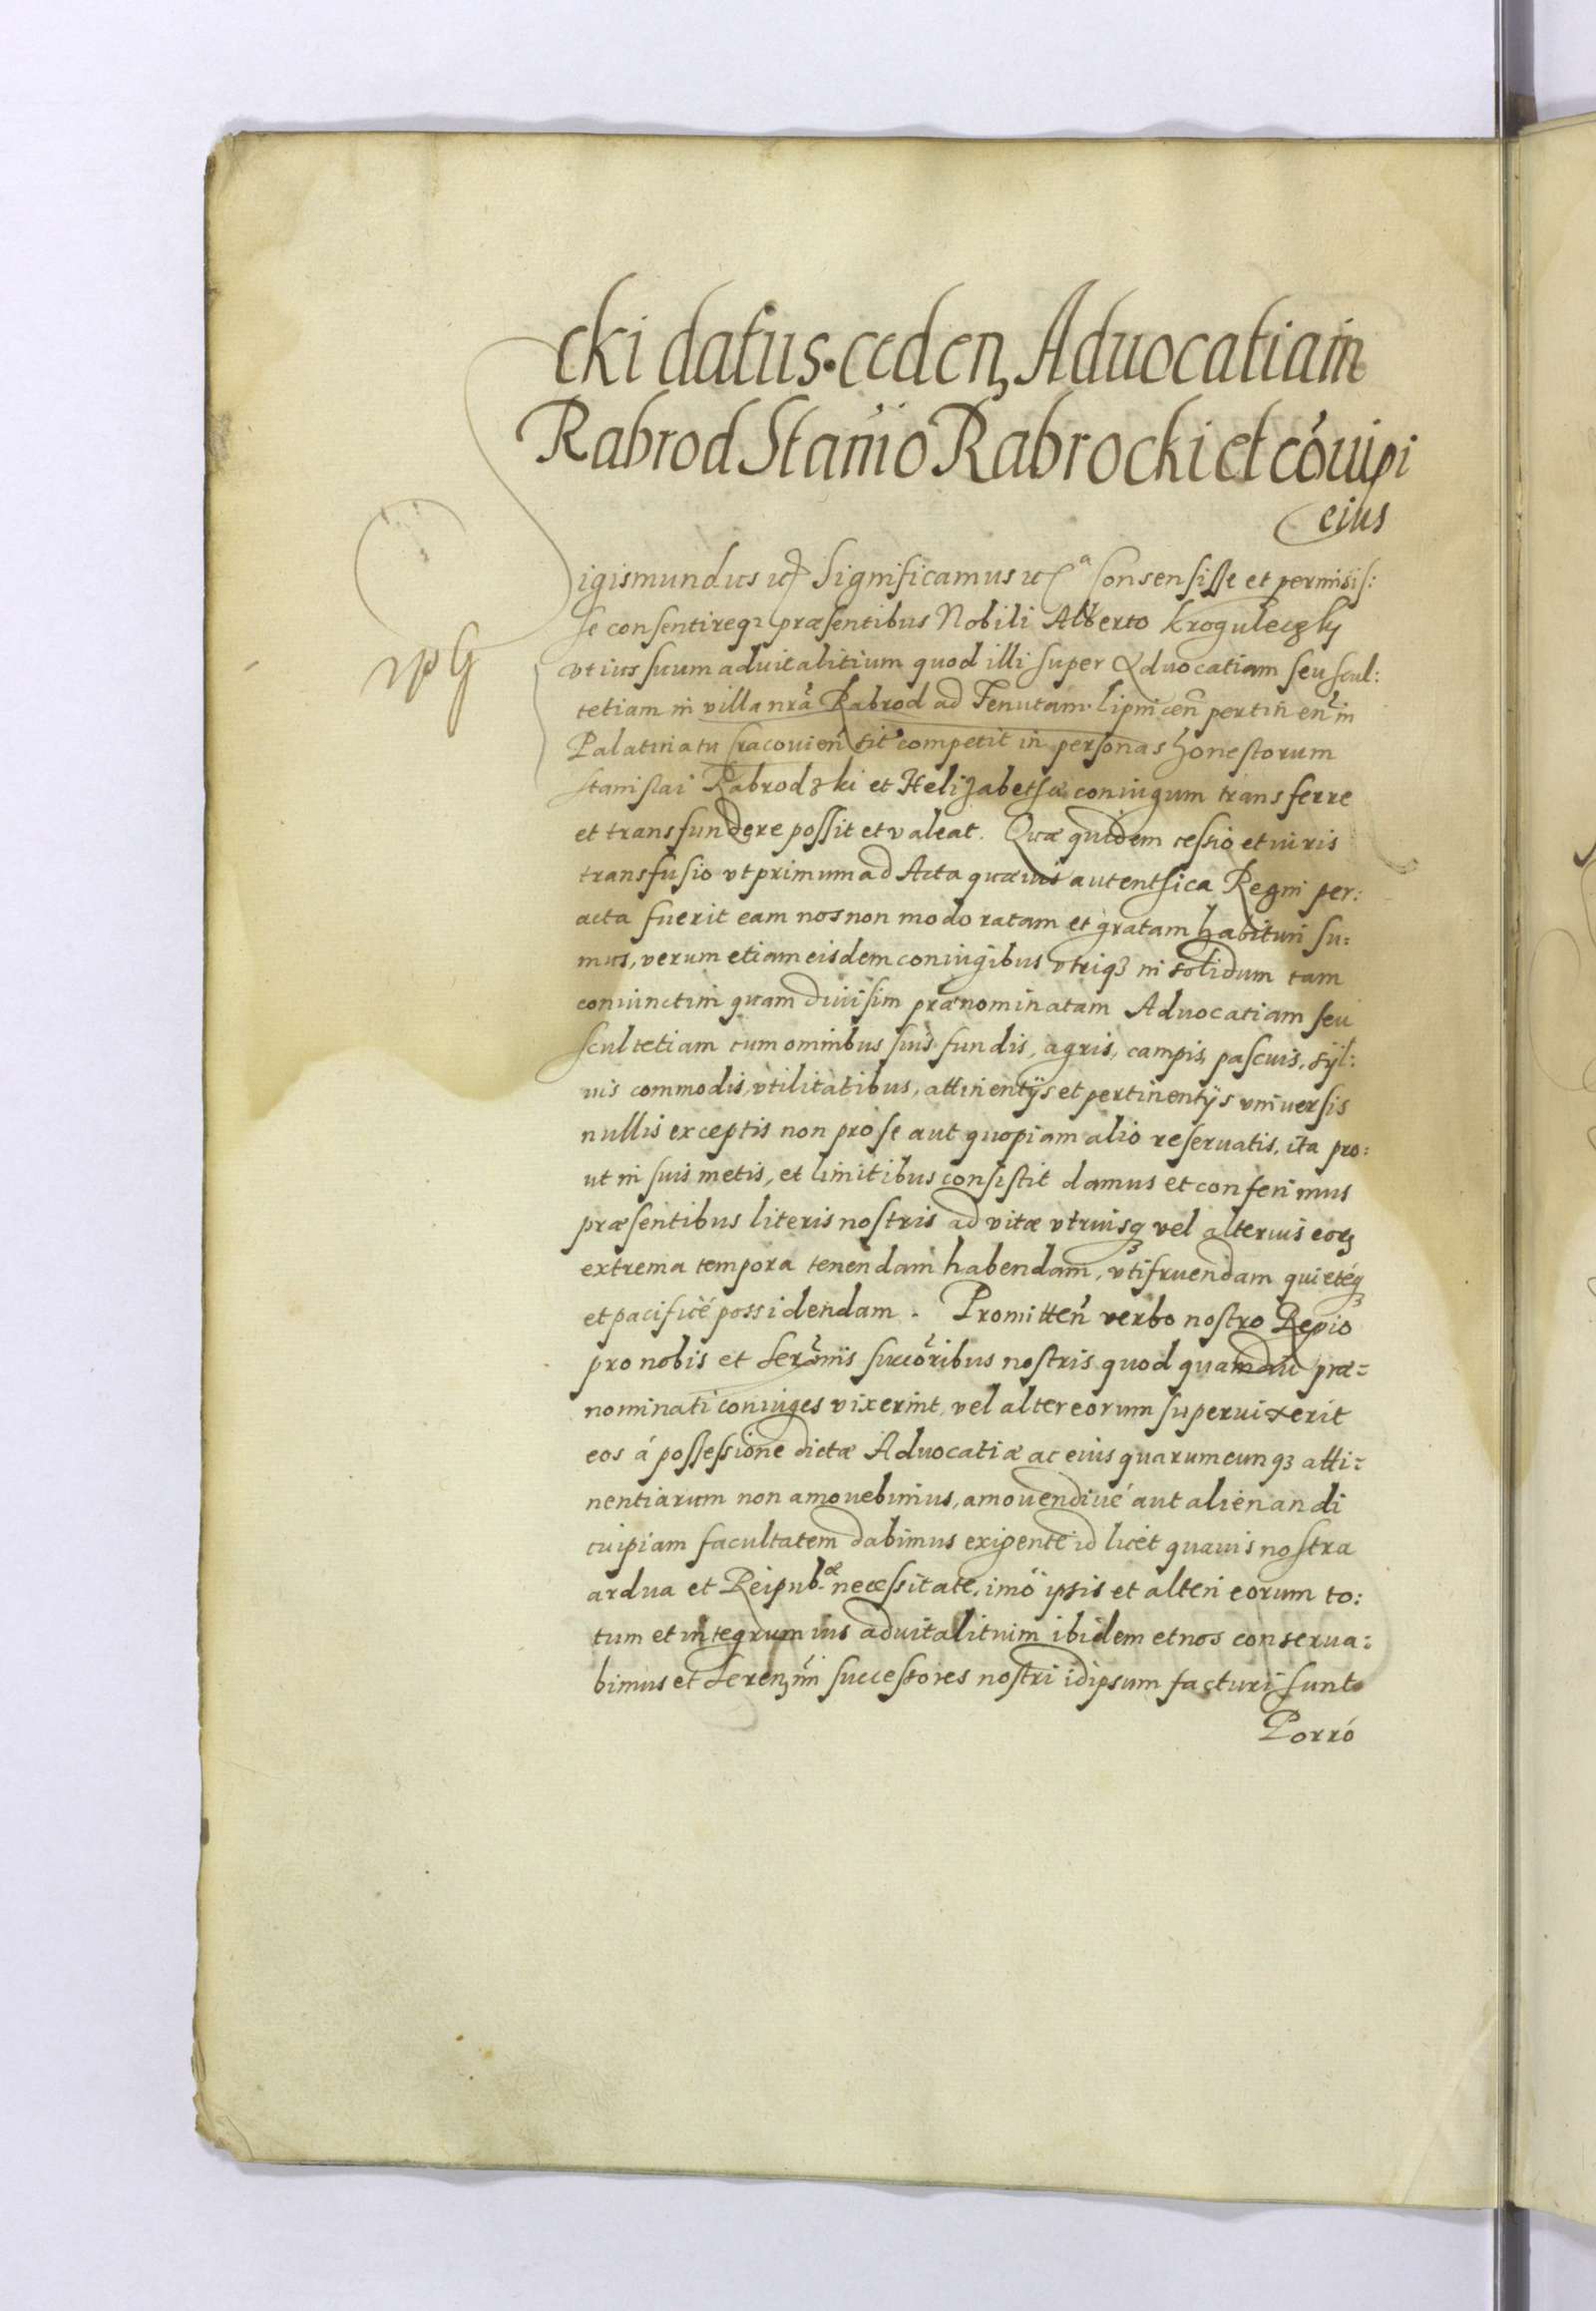 cki datus. ceden, Aduocatiam
Rabrod Stanio Rabrocki et cóiugi
eius
Sigismundus etc Significamus etc a Consensisse et permisis:
se consentireq3 præsentibus Nobili Alberto Kroguleczky
vt ius suum aduitalitium quod illi super Aduocatiam seu scul:
tetiam in villa nrã Rabrod ad Tenutam lipnicen̄ pertinen̄ in
Palatinatu Cracouien̄ sit competit in personas honestorum
Stanislai Rabrodzki et Helizabethæ coniugum transferre
et transfundere possit et valeat. Quæ quidem cessio et iuris
transfusio vt primum ad Acta quæuis autenthica Regni per:
acta fuerit eam nos non modo ratam et gratam habituri su:
mus, verum etiam eisdem coniugibus vtriq3 in solidum tam
coniunctim quam diuisim prænominatam Aduocatiam seu
scultetiam cum omnibus suis fundis, agris, campis, pascuis, syl:
uis commodis, vtilitatibus, attinentÿs et pertinentÿs vniuersis
nullis exceptis non pro se aut quopiam alio reseruatis, ita pro:
ut in suis metis, et limitibus consistit damus et conferimus
præsentibus literis nostris ad vitæ vtriusq3 vel alterius eorz
extrema tempora tenendam habendam, vtifruendam quietéq3
et pacificé possidendam. Promitten̄ verbo nostro Regio
pro nobis et Serẽmis succõribus nostris quod quamdiu præ=
nominati coniuges vixerint, vel alter eorum superuixerit
eos á possessione dictæ Aduocatiæ ac eius quarumcunq3 atti=
nentiarum non amouebimus, amouendiué aut alienandi
cuipiam facultatem dabimus exigente id licét quauis nostra
ardua et Reipub.æ necessitate, imó ipsis et alteri eorum to:
tum et integrum ius aduitalituim ibidem et nos conserua:
bimus et Serenmi successores nostri idipsum facturi sunt.
Porró